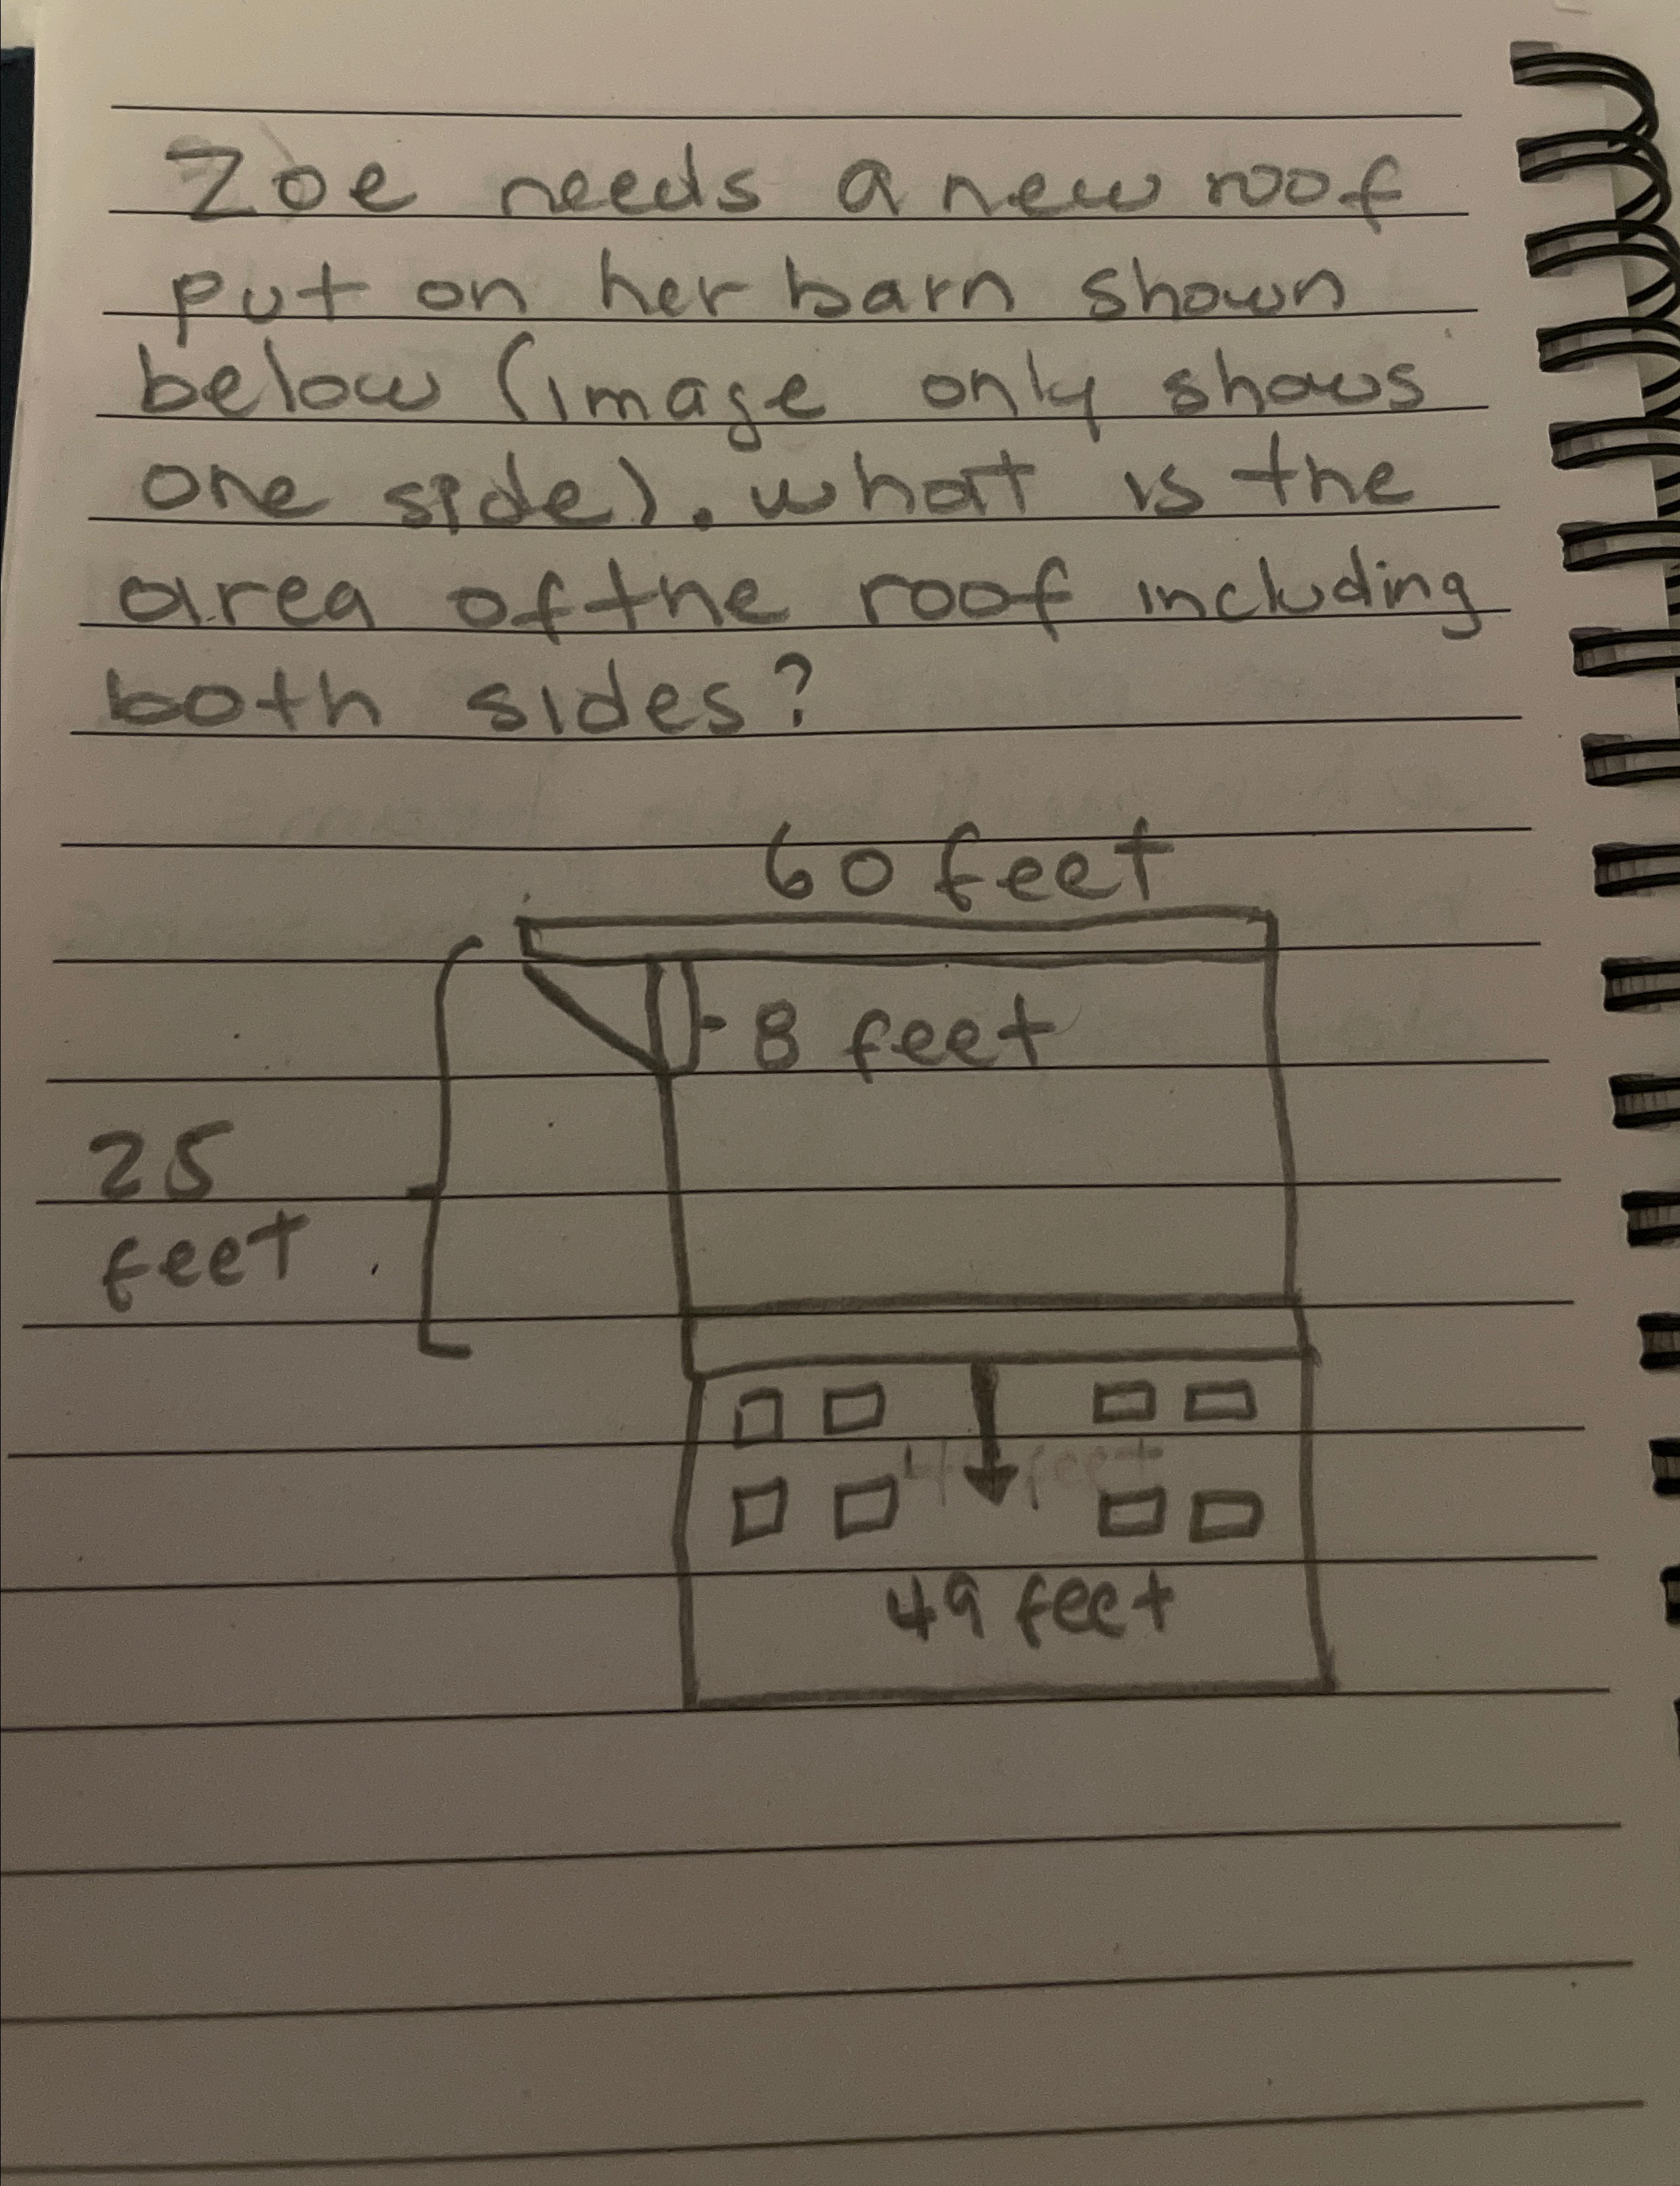 Zoe needs a new roof
put on her barn shown
below (image only shows
one side). what is the
area of the roof including
both sides?
60 feet
8 feet
25
feet
feet
49 feet